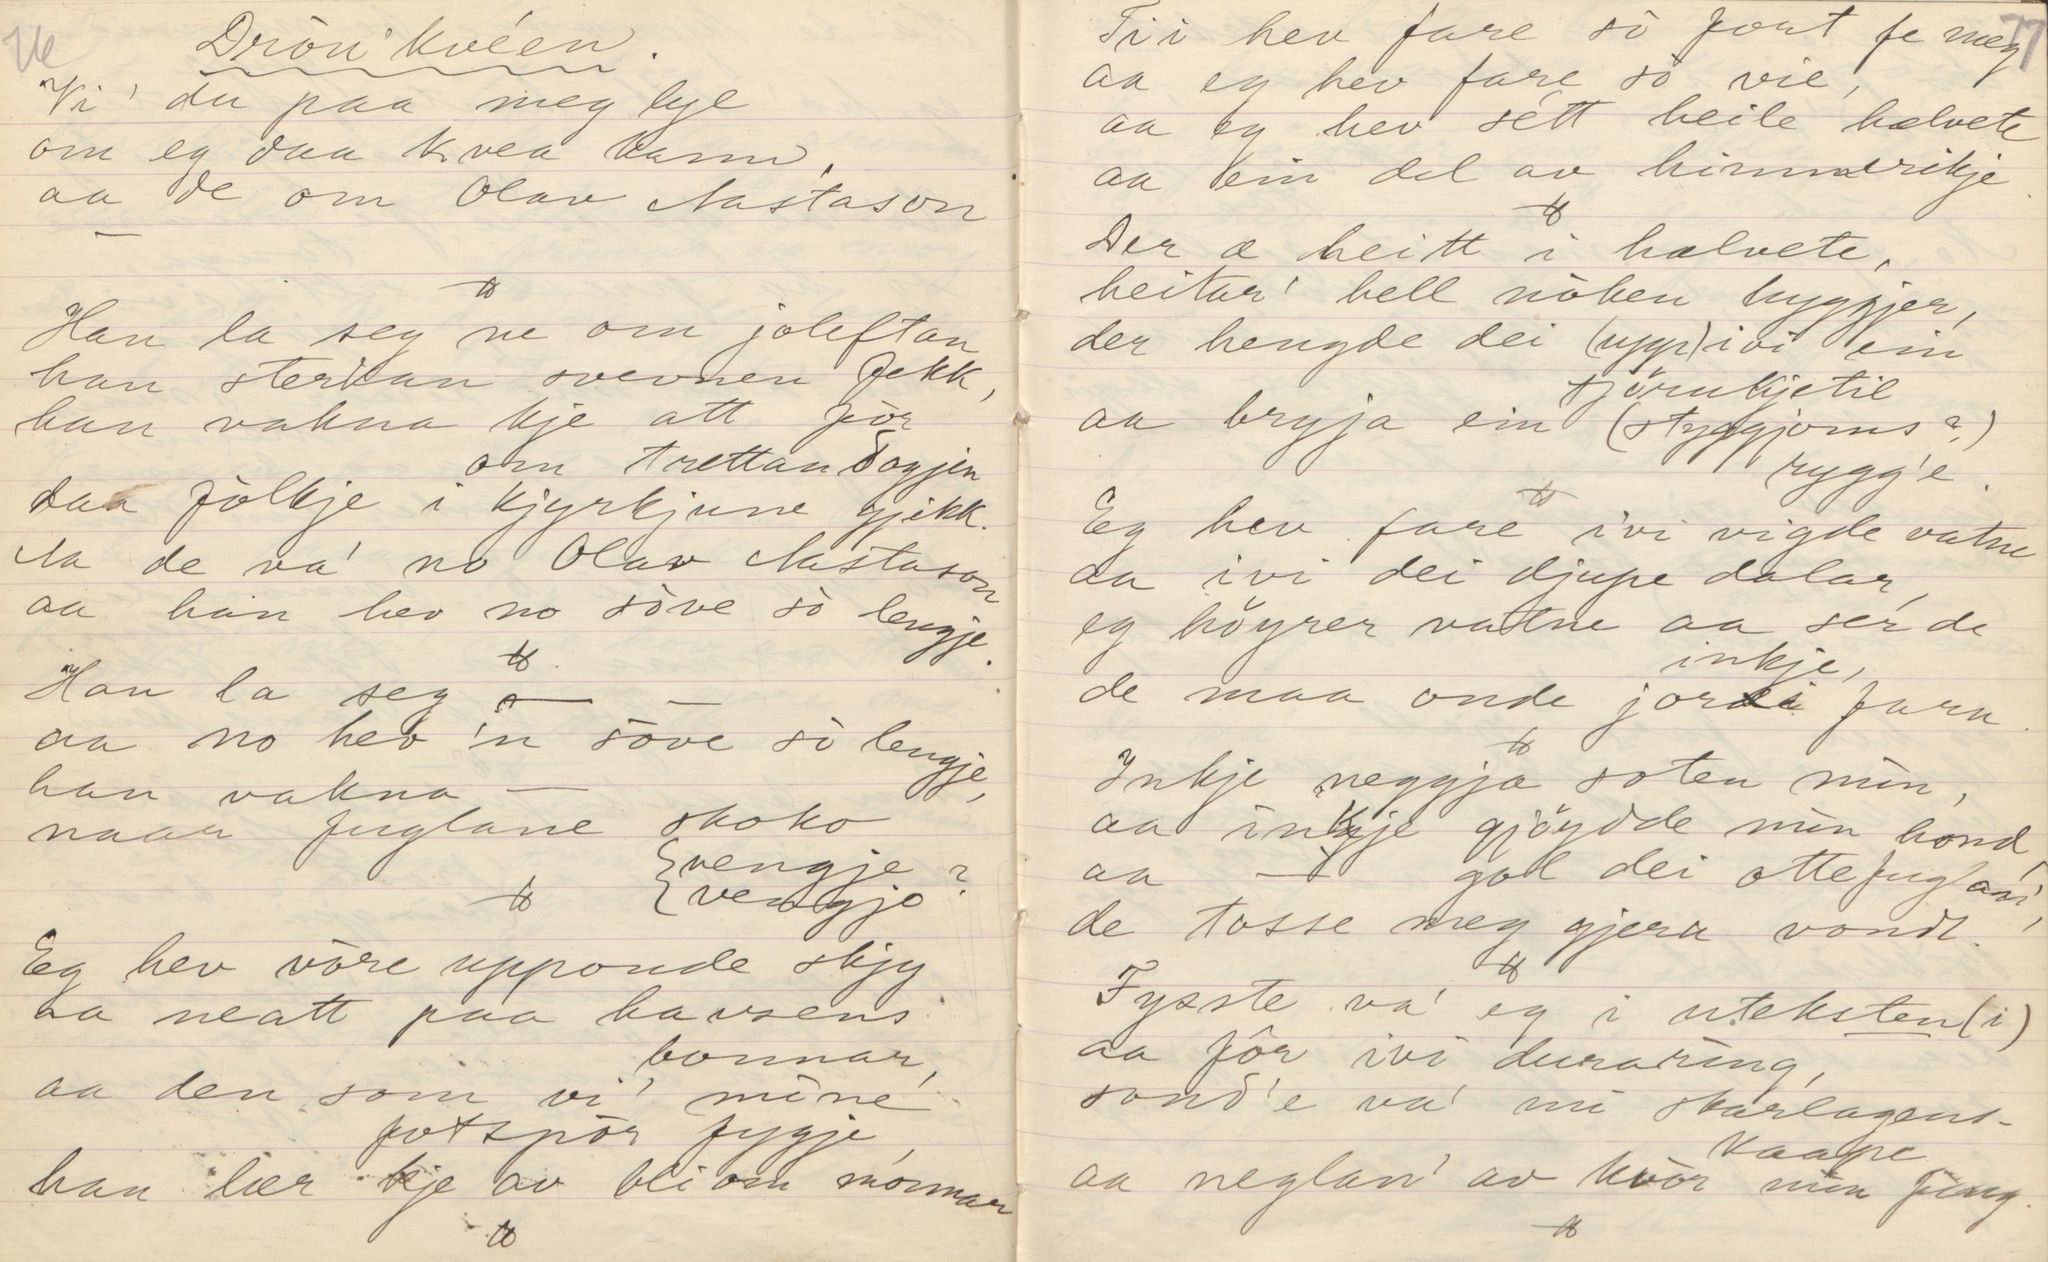 76
Dròu'kvéen.
Vi' du paa meg lye
om eg daa kvea kann,
aa de om Olav Nastason
—
Han la seg ne om joleftan
han sterkan svevnen fekk,
han vakna kje att för
om trettandagjen
daa fòlkje i kjyrkjune gjikk.
Aa de va' no Olav Nastason
aa han hev no söve sò lengje.
Han la seg — —
aa no hev 'n söve sò lengje,
han vakna —
naar fuglane skoko
{vengje ?
{vengjo
Eg hev vòre upponde skjy
aa neatt paa havsens
bonnar,
aa den som vi' mine
fotspòr fygje
han lær kje av bli om mónnar
77
Tii hev fare sò fort fe meg
aa eg hev fare sò vie,
aa eg hev sétt heile helvete
aa ein del av himmerikje.
Der æ heitt i hælvete,
heitar' hell nòken hyggjer,
der hengde dei (upp) ivi ein
tjörukjetil
aa bryja ein (styggjoms?)
rygg'e.
Eg hev fare ivi vigde vatne
aa ivi dei djupe dalar,
eg höyrer vatne aa ser de
inkje,
de maa onde jordi fara.
Inkje neggja soten min,
aa inkje gjöydde min hond
aa — gol dei ottefuglan',
de tosse meg gjera vondt.
Fysste va' eg i uteksten (i)
aa fór ivi duraring,
sond'e va' mi skarlagens-
kaape
aa neglan' av kvòr min fing.